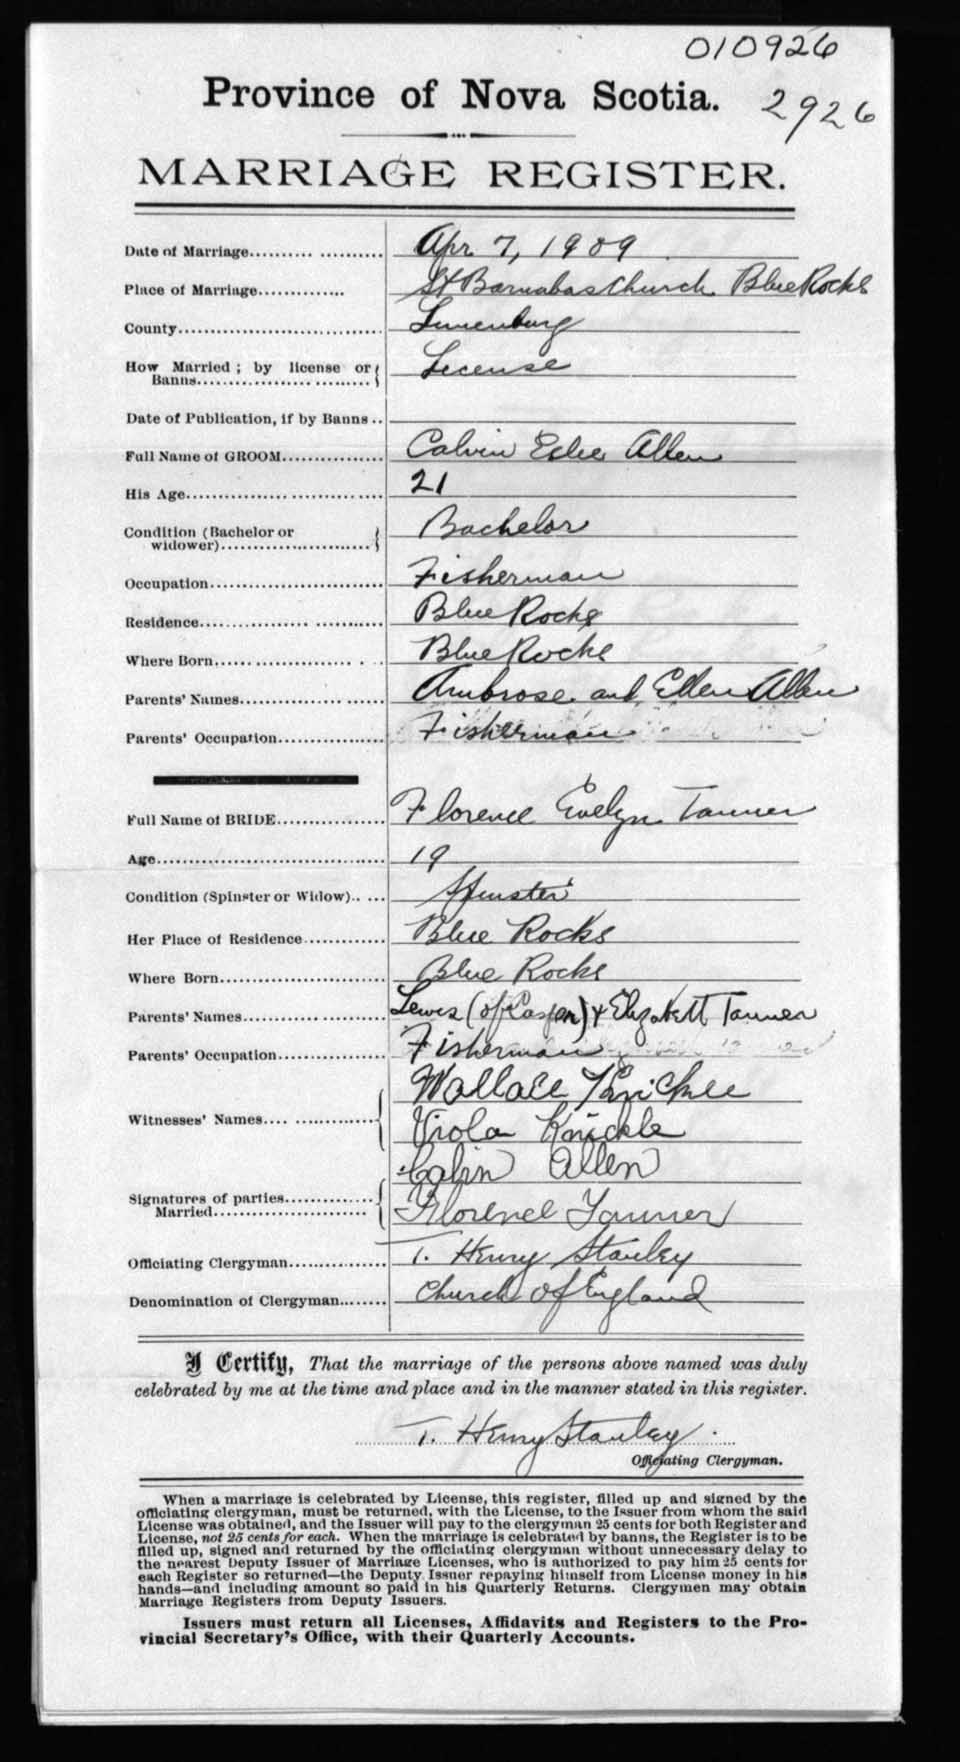 010926
Province of Nova Scotia. 2926
MARRIAGE REGISTER.
Date of Marriage.......... ........... Apr. 7, 1909
Place of Marriage.............. St Barnabas Church Blue Rocks
County............................... Lunenburg
How Married ; by license or License
Banns.................. .........
Date of Publication, if by Banns ..
Full Name of GROOM................ Calvin Eslie Allen
His Age................ .............. 21
Condition (Bachelor or Bachelor
widower)..........................
Occupation........................... Fisherman
Residence................. ........... Blue Rocks
Where Born...................... . .. Blue Rocks
Parents' Names................. ...... Ambrose and Ellen Allen
Parents' Occupation................. Fisherman
Full Name of BRIDE................. Florence Evelyn Tanner
Age.................................... 19
Condition (Spinster or Widow).. ... Spinster
Her Place of Residence............. Blue Rocks
Where Born.......................... Blue Rocks
Parents' Names............ ........... Lewis (of Casper) & Elizabeth Tanner
Parents' Occupation................. Fisherman
Wallace Knickle
Witnesses' Names.... .............
Viola Knickle
Calvin Allen
Signatures of parties..............
Married........................ Florence Tanner
Officiating Clergyman................ T. Henry Stanley
Denomination of Clergyman........ Church of England
I Certify, That the marriage of the persons above named was duly
celebrated by me at the time and place and in the manner stated in this register.
T. Henry Stanley.
Officiating Clergyman.
When a marriage is celebrated by License, this register, filled up and signed by the
officiating clergyman, must be returned, with the License, to the Issuer from whom the said
License was obtained, and the Issuer will pay to the clergyman 25 cents for both Register and
License, not 25 cents for each. When the marriage is celebrated by banns, the Register is to be
filled up, signed and returned by the officiating clergyman without unnecessary delay to
the nearest Deputy Issuer of Marriage Licenses, who is authorized to pay him 25 cents for
each Register so returned—the Deputy Issuer repaying himself from License money in his
hands—and including amount so paid in his Quarterly Returns. Clergymen may obtain
Marriage Registers from Deputy Issuers.
Issuers must return all Licenses, Affidavits and Registers to the Pro-
vincial Secretary's Office, with their Quarterly Accounts.